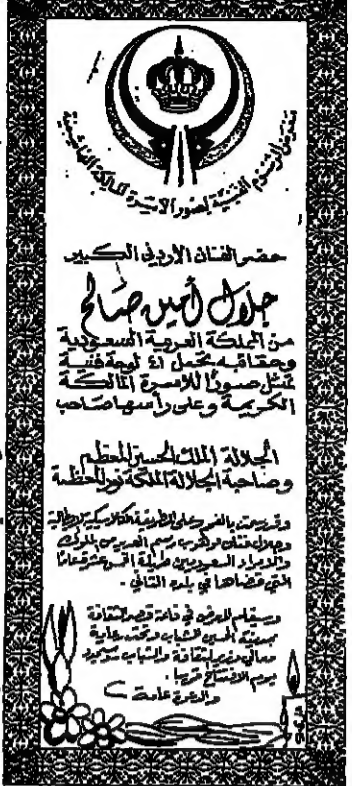 معرض الرسوم الفنية لصور الاسرة المالكة الهاشمية
حضر الفنان الاردني الكبير
جلال أمين صالح
من المملكة العربية السعودية
وحقائبه تحمل ٤١ لوحة فنية
تمثل صورًا للاسرة المالكة
الكريمة وعلى رأسها صاحب
الجلالة الملك الحسين المعظم
وصاحبة الجلالة الملكة نور المعظمة
وقد رسمت بالفحم على الطريقة الكلاسيكية الايطالية
وجلال فنان اردني رسم العديد من الملوك
والامراء السعوديين طيلة الخمس عشرة عامًا
التي قضاها في بلده الثاني .
وسيقام المعرض في قاعة قصر الثقافة
بمدينة الحسين للشباب وتحت رعاية
معالي وزير الثقافة والشباب
يوم الافتتاح قريبا .
والدعوة عامة